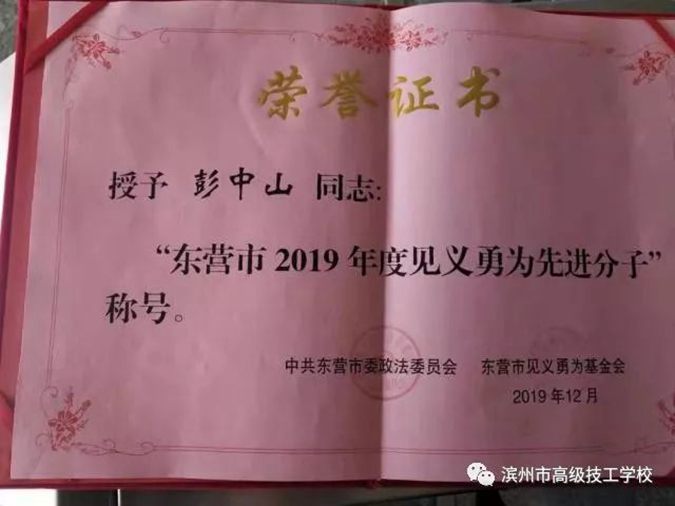 荣誉证书
授予 彭中山 同志:
“东营市 2019 年度见义勇为先进分子”
称号。
中共东营市委政法委员会 东营市见义勇为基金会
2019 年12 月
滨州市高级技工学校